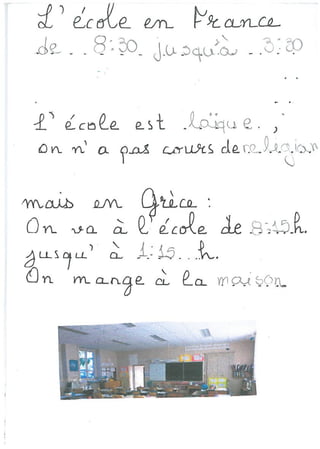 L'école en France
de .. 8:30. jusqu'à .. 3:30
L'école est .laïque. ,
on n'a pas cours de religion
mais en Grèce :
On va à l'école de 8:15h.
jusqu'à 1:15...h.
On mange à la maison